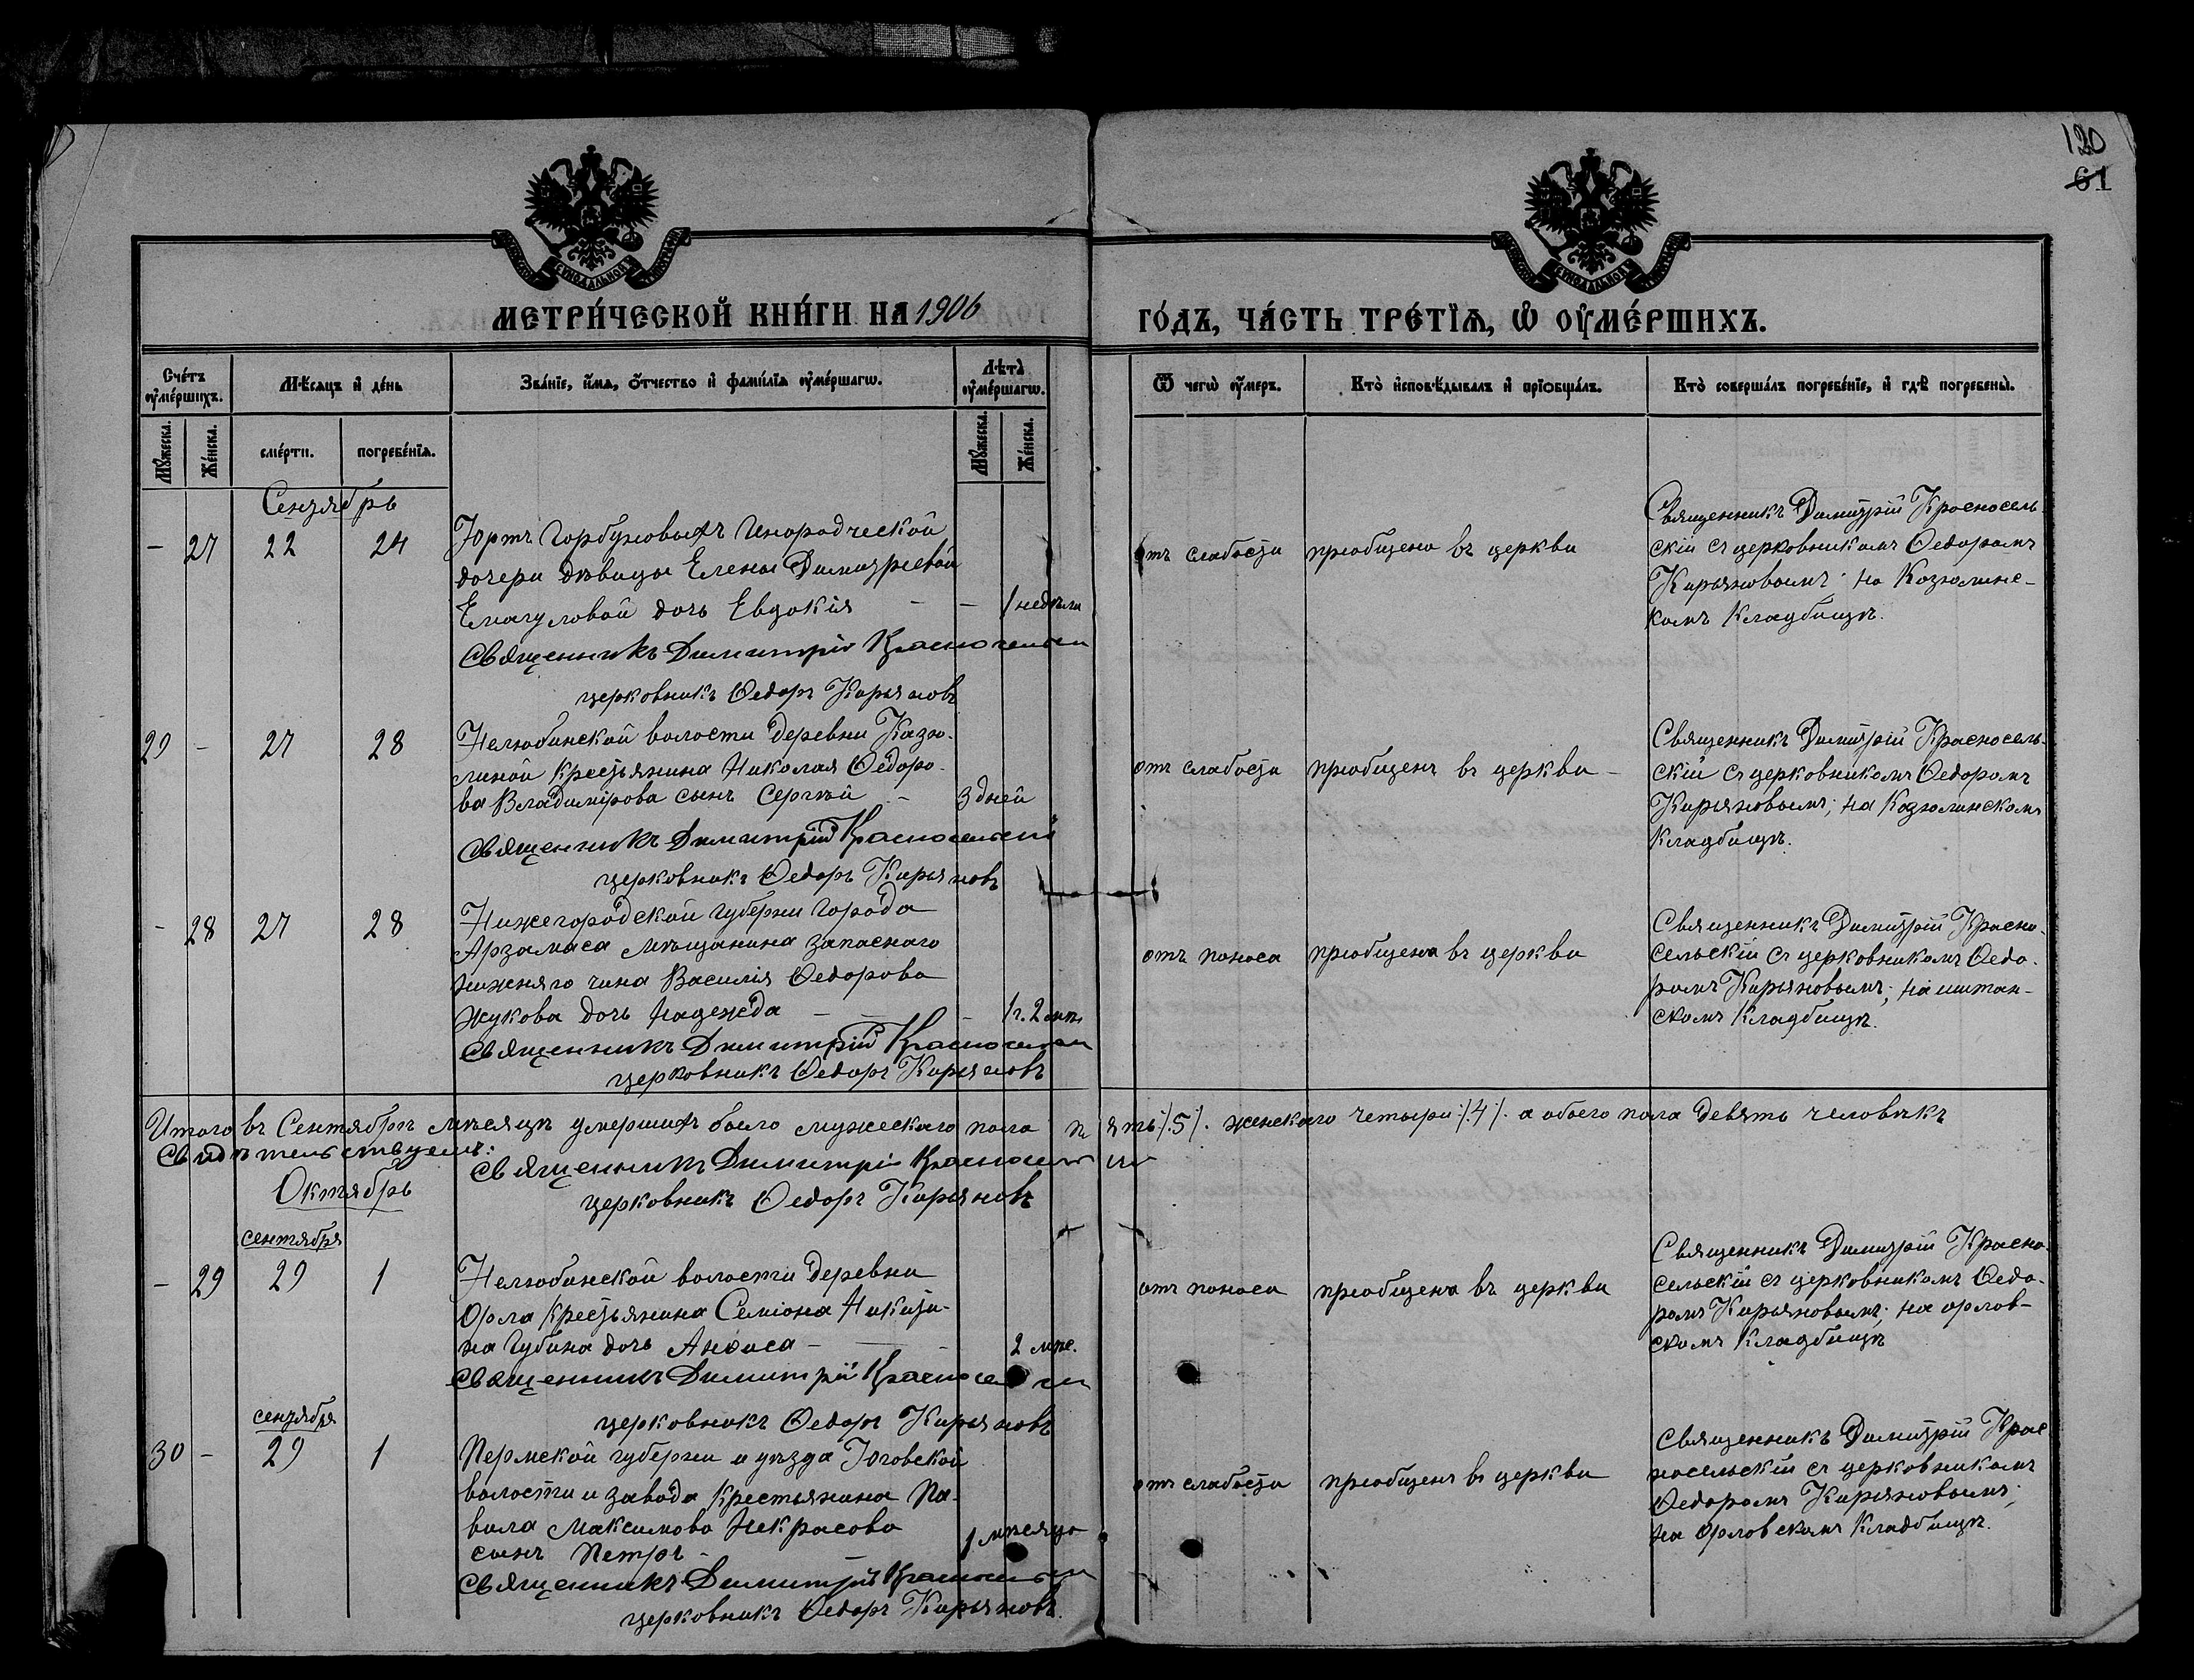 120
61
МЕТРИ́ЧЕСКОЙ КНИ́ГИ НА 1906
ГО́ДЪ, ЧА́СТЬ ТРЕ́ТЇѦ, Ѽ ОУ҆МЕ́РШИХЪ.
Сче́тъ оу҆ме́ршихъ.
Мѣсяцъ и҆ де́нь
Зва́нїе, и҆́мя, ѻ҆́тчество и҆ фами́лїя оу҆ме́ршагѡ.
Лѣта̀ оу҆ме́ршагѡ.
Ѿ чегѡ̀ оу҆́меръ.
Кто̀ и҆сповѣ́дывалъ и҆ прїѡбща́лъ.
Кто̀ соверша́лъ погребе́нїе, и҆ гдѣ̀ погребены̀.
Мꙋ́жеска.
Же́нска.
сме́рти.
погребе́нїя.
Мꙋ́жеска.
Же́нска.
Сентябрь
- 27 22 24
Юртъ Горбуновыхъ Инородческой
дочери дѣвицы Елены Димитріевой
Емагуловой дочь Евдокія - - 1 недѣли
Священникъ Димитрій Красносельскій
церковникъ Ѳедоръ Кирьяновъ
отъ слабости
приобщена въ церкви
Священникъ Димитрій Красносель-
скій съ церковникомъ Ѳедоромъ
Кирьяновымъ; на Козюлинс-
комъ Кладбищѣ.
29 - 27 28
Нелюбинской волости деревни Казю-
линой крестьянина Николая Ѳедоро-
ва Владимірова сынъ Сергѣй - 3 дней
Священникъ Димитрій Красносельскій
церковникъ Ѳедоръ Кирьяновъ
отъ слабости
приобщенъ въ церкви -
Священникъ Димитрій Красносель-
скій съ церковникомъ Ѳедоромъ
Кирьяновымъ; на Козюлинскомъ
Кладбищѣ.
- 28 27 28
Нижегородской губерни города
Арзамаса мѣщанина запаснаго
нижняго чина Василія Ѳедорова
Жукова дочь Надежда - - - 1 г. 2 мѣс.
Священникъ Димитрій Красносельскій
церковникъ Ѳедоръ Кирьяновъ
отъ поноса
приобщена въ церкви
Священникъ Димитрій Красно-
сельскій съ церковникомъ Ѳедо-
ромъ Кирьяновымъ; на иштан-
скомъ Кладбищѣ.
Итого въ Сентябрѣ мѣсяцѣ умершихъ было мужескаго пола пять ⁒ 5 ⁒. женскаго четыри ⁒ 4 ⁒. а обоего пола девять человѣкъ
Свидѣтельствуемъ:
Священникъ Димитрій Красносельскій
церковникъ Ѳедоръ Кирьяновъ
Октябрь
сентября
- 29 29 1
Нелюбинской волости деревни
Орла крестьянина Семіона Никити-
на Губина дочь Анѳиса - - - 2 мѣс.
Священникъ Димитрій Красносельскій
церковникъ Ѳедоръ Кирьяновъ
отъ поноса
приобщена въ церкви
Священникъ Димитрій Красно-
сельскій съ церковникомъ Ѳедо-
ромъ Кирьяновымъ; на орлов-
скомъ Кладбищѣ
сентября
30 - 29 1
Пермской губерни и уѣзда Юговской
волости и завода крестьянина Па-
вола Максимова Некрасова
сынъ Петръ - 1 мѣсяца
Священникъ Димитрій Красносельскій
церковникъ Ѳедоръ Кирьяновъ.
отъ слабости
приобщенъ въ церкви
Священникъ Димитрій Крас-
носельскій съ церковникомъ
Ѳедоромъ Кирьяновымъ;
на орловскомъ Кладбищѣ.